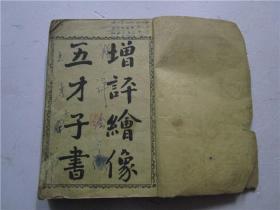 增評繪像
五才子書